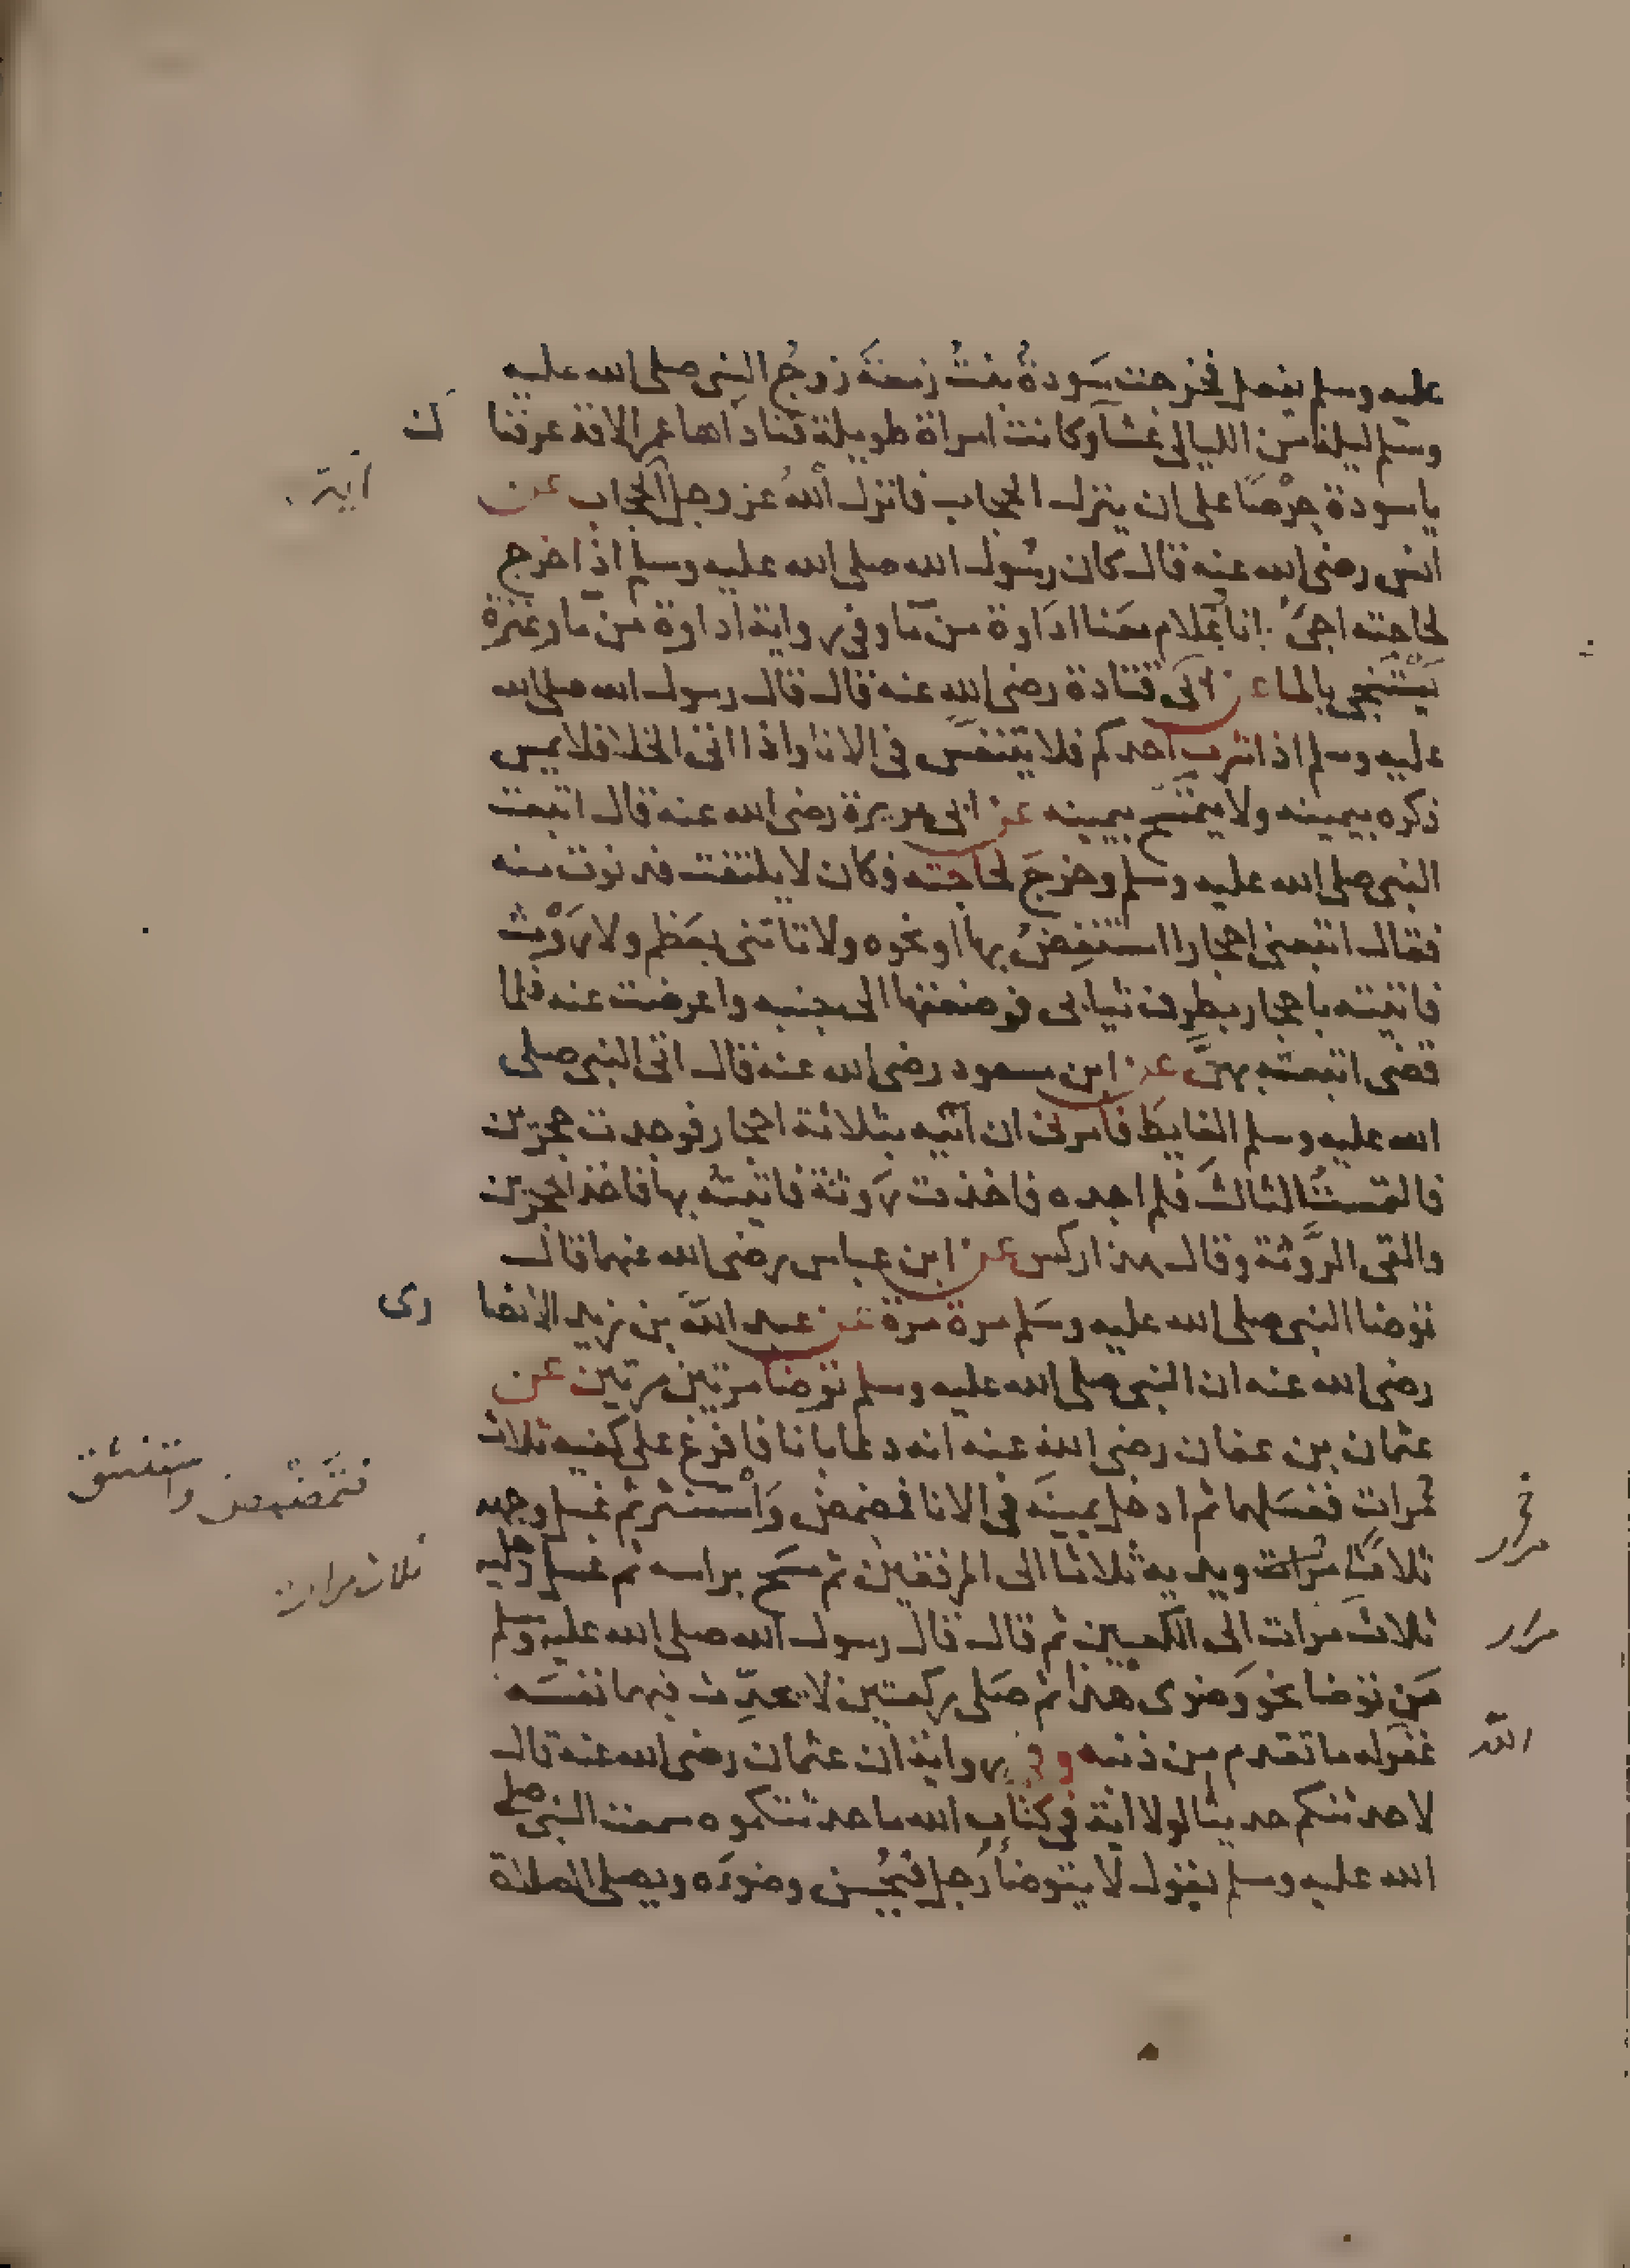 عليه وسلم يفعل فخرجت سَودةُ بنتُ زمعَةَ زوجُ النبي صلى الله عليه
وسلم ليلة من الليالي عشآ وكانت امراة طويلة فناداها عمر الا قد عرفنا
ك
ياسودة حِرْصًا على ان ينزل الحجاب فانزل اللهُ عز وجل الحجاب عن
آية
انس رضي الله عنه قال كان رسُول الله صلى الله عليه وسلم اذا خرج
لحاجته اجىُ انا وغلام معَنا ادَاوة من مآ وفي رواية اداوة من مآ وعنزة
يستنجي بالما عن ابى قتادة رضي الله عنه قال قال رسول الله صلى الله
عليه وسلم اذا شرب احدكم فلا يتنفسّ في الانا واذا اتى الخلا فلا يمس
ذكره بيمينه ولا يتمسّح بيمينه عن ابى هريرة رضي الله عنه قال اتبعت
النبي صلى الله عليه وسلم وخرجَ لحاجته وكان لا يلتفت فدنوت منه
فقال ابغني احجارا استنفِضُ بها او نحوه ولا تاتني بعَظم ولا رَوْث
فاتيته باحجار بطرف ثيابى فوضعتها الى جنبه واعرضت عنه فلما
قضى اتبعته بهنّ عن ابن مسعود رضي الله عنه قال اتى النبي صلى
الله عليه وسلم الغايطَ فامرني ان آتيه بثلاثة احجار فوجدت حجرين
فالتمستُ الثالثَ فلم اجده فاخذت رَوثة فاتيته بها فاخذ الحجرين
والقى الرَّوثة وقال هذا ركس عن ابن عباس رضي الله عنهما قال
توضا النبي صلى الله عليه وسلم مرة مرة عن عبد الله بن زيد الانصا
رى
رضي الله عنه ان النبي صلى الله عليه وسلم توضا مرتين مرتين عن
عثمان بن عفان رضي الله عنه انه دعا بانا فافرغ على كفيه ثلاث
مرات فغسَلهما ثم ادخل يمينَه في الانا فمضمض وَاسْتنثر ثم غسل وجهه
فتمَضْمض واستنشق
مرار
ثلاثًا مرات ويديه ثلاثا الى المرفقين ثم مسَح براسه ثم غسل رجليه
ثلاث مرات
ثلاث مرات الى الكعبين ثم قال قال رسول الله صلى الله عليه وسلم
مرار
مَن توضا نحو وَضوى هذا ثم صَلى ركعتين لا يحدّث فيهما نفسَه
غفر له ما تقدم من ذنبه وفي رواية ان عثمان رضي الله عنه قال
الله
لاحدثنكم حديثا لولا آية في كتاب الله ما حدثتكموه سمعت النبي صلى
الله عليه وسلم يقول لا يتوضأ رَجل فيُحْسن وضوءَه ويصلى الصلاة